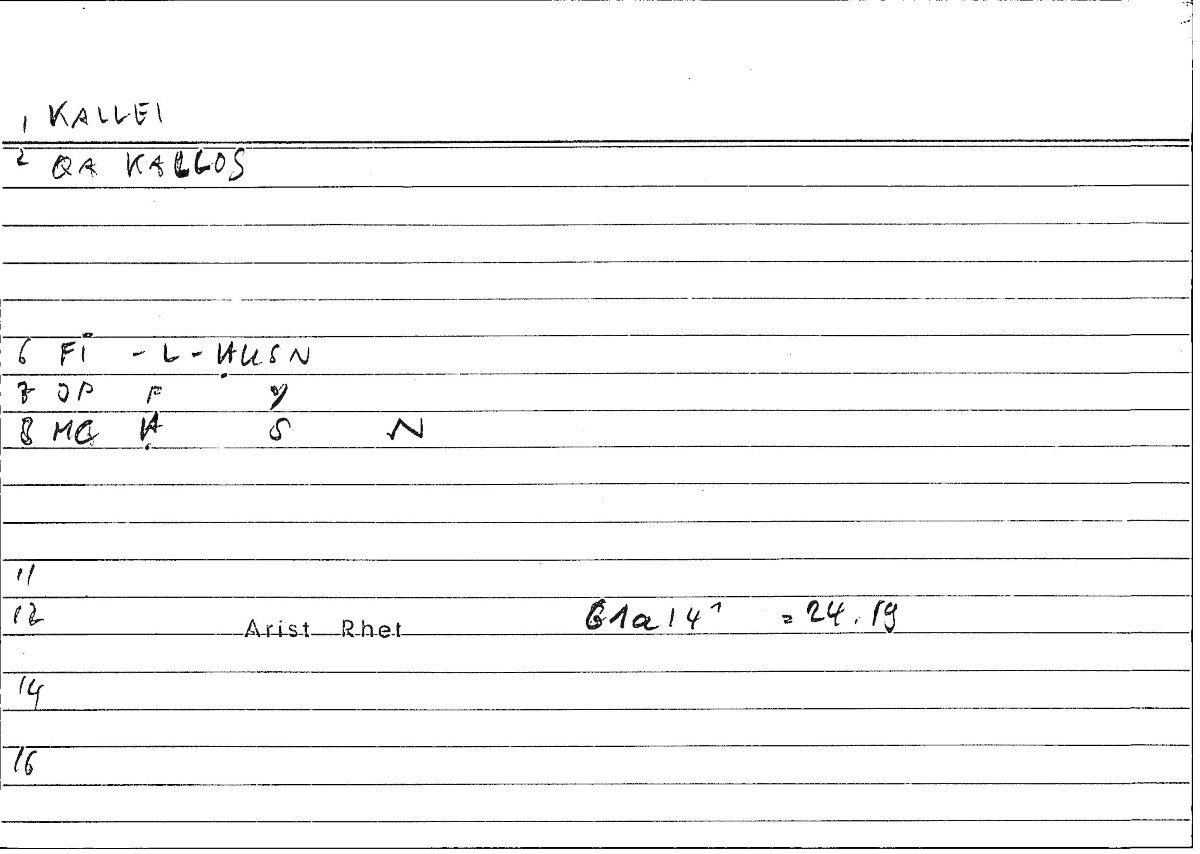 1 KALLEI
2 QA KALLOS
6 FI - L - ḤUSN
7 OP F Y
8 MQ Ḥ S N
11
12 Arist Rhet 61a14¹ = 24.19
14
16